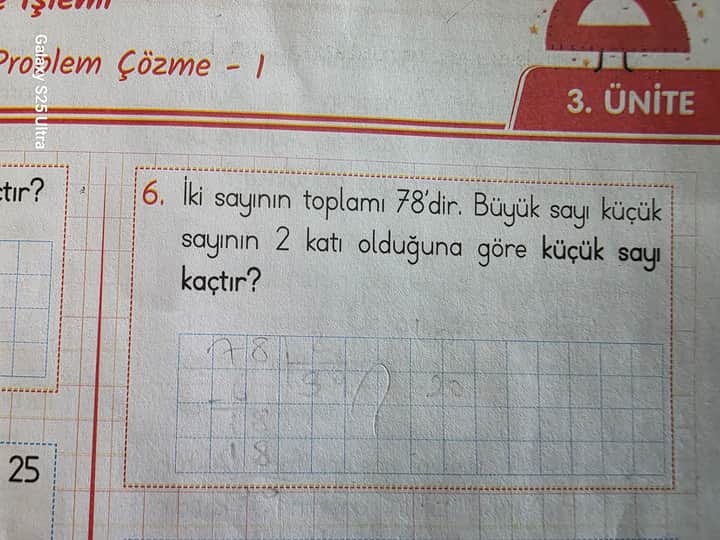 Problem Çözme - 1
Galaxy S25 Ultra
3. ÜNİTE
6. İki sayının toplamı 78'dir. Büyük sayı küçük
sayının 2 katı olduğuna göre küçük sayı
kaçtır?
78
18
18
25